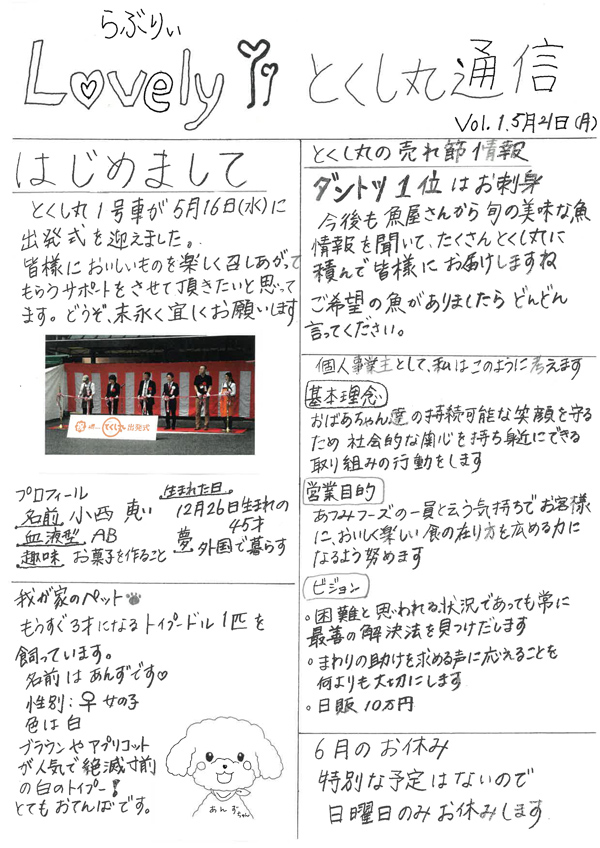 らぶりぃ
Lovely とくし丸通信
Vol.1.5月21日(月)
はじめまして
とくし丸1号車が5月16日(水)に
出発式を迎えました。
皆様においしいものを楽しく召しあがって
もらうサポートをさせて頂きたいと思って
ます。どうぞ、末永く宜しくお願いします
祝 とくし丸 出発式
プロフィール
名前 小西 恵い
血液型 AB
趣味 お菓子を作ること
生まれた日
12月26日生まれの
45才
夢 外国で暮らす
我が家のペット
もうすぐ3才になるトイプードル1匹を
飼っています。
名前はあんずです♡
性別:♀女の子
色は白
ブラウンやアプリコット
が人気で絶滅寸前
の白のトイプー!
とてもおてんばです。
あんずちゃん
とくし丸の売れ筋情報
ダントツ1位はお刺身
今後も魚屋さんから旬の美味な魚
情報を聞いて、たくさんとくし丸に
積んで皆様にお届けしますね
ご希望の魚がありましたらどんどん
言ってください。
個人事業主として、私はこのように考えます
基本理念
おばあちゃん達の持続可能な笑顔を守る
ため社会的な関心を持ち身近にできる
取り組みの行動をします
営業目的
あつみフーズの一員と云う気持ちでお客様
に、おいしく楽しい食の在り方を広める力に
なるよう努めます
ビジョン
。困難と思われる状況であっても常に
最善の解決法を見つけだします
。まわりの助けを求める声に応えることを
何よりも大切にします
。日販10万円
6月のお休み
特別な予定はないので
日曜日のみお休みします